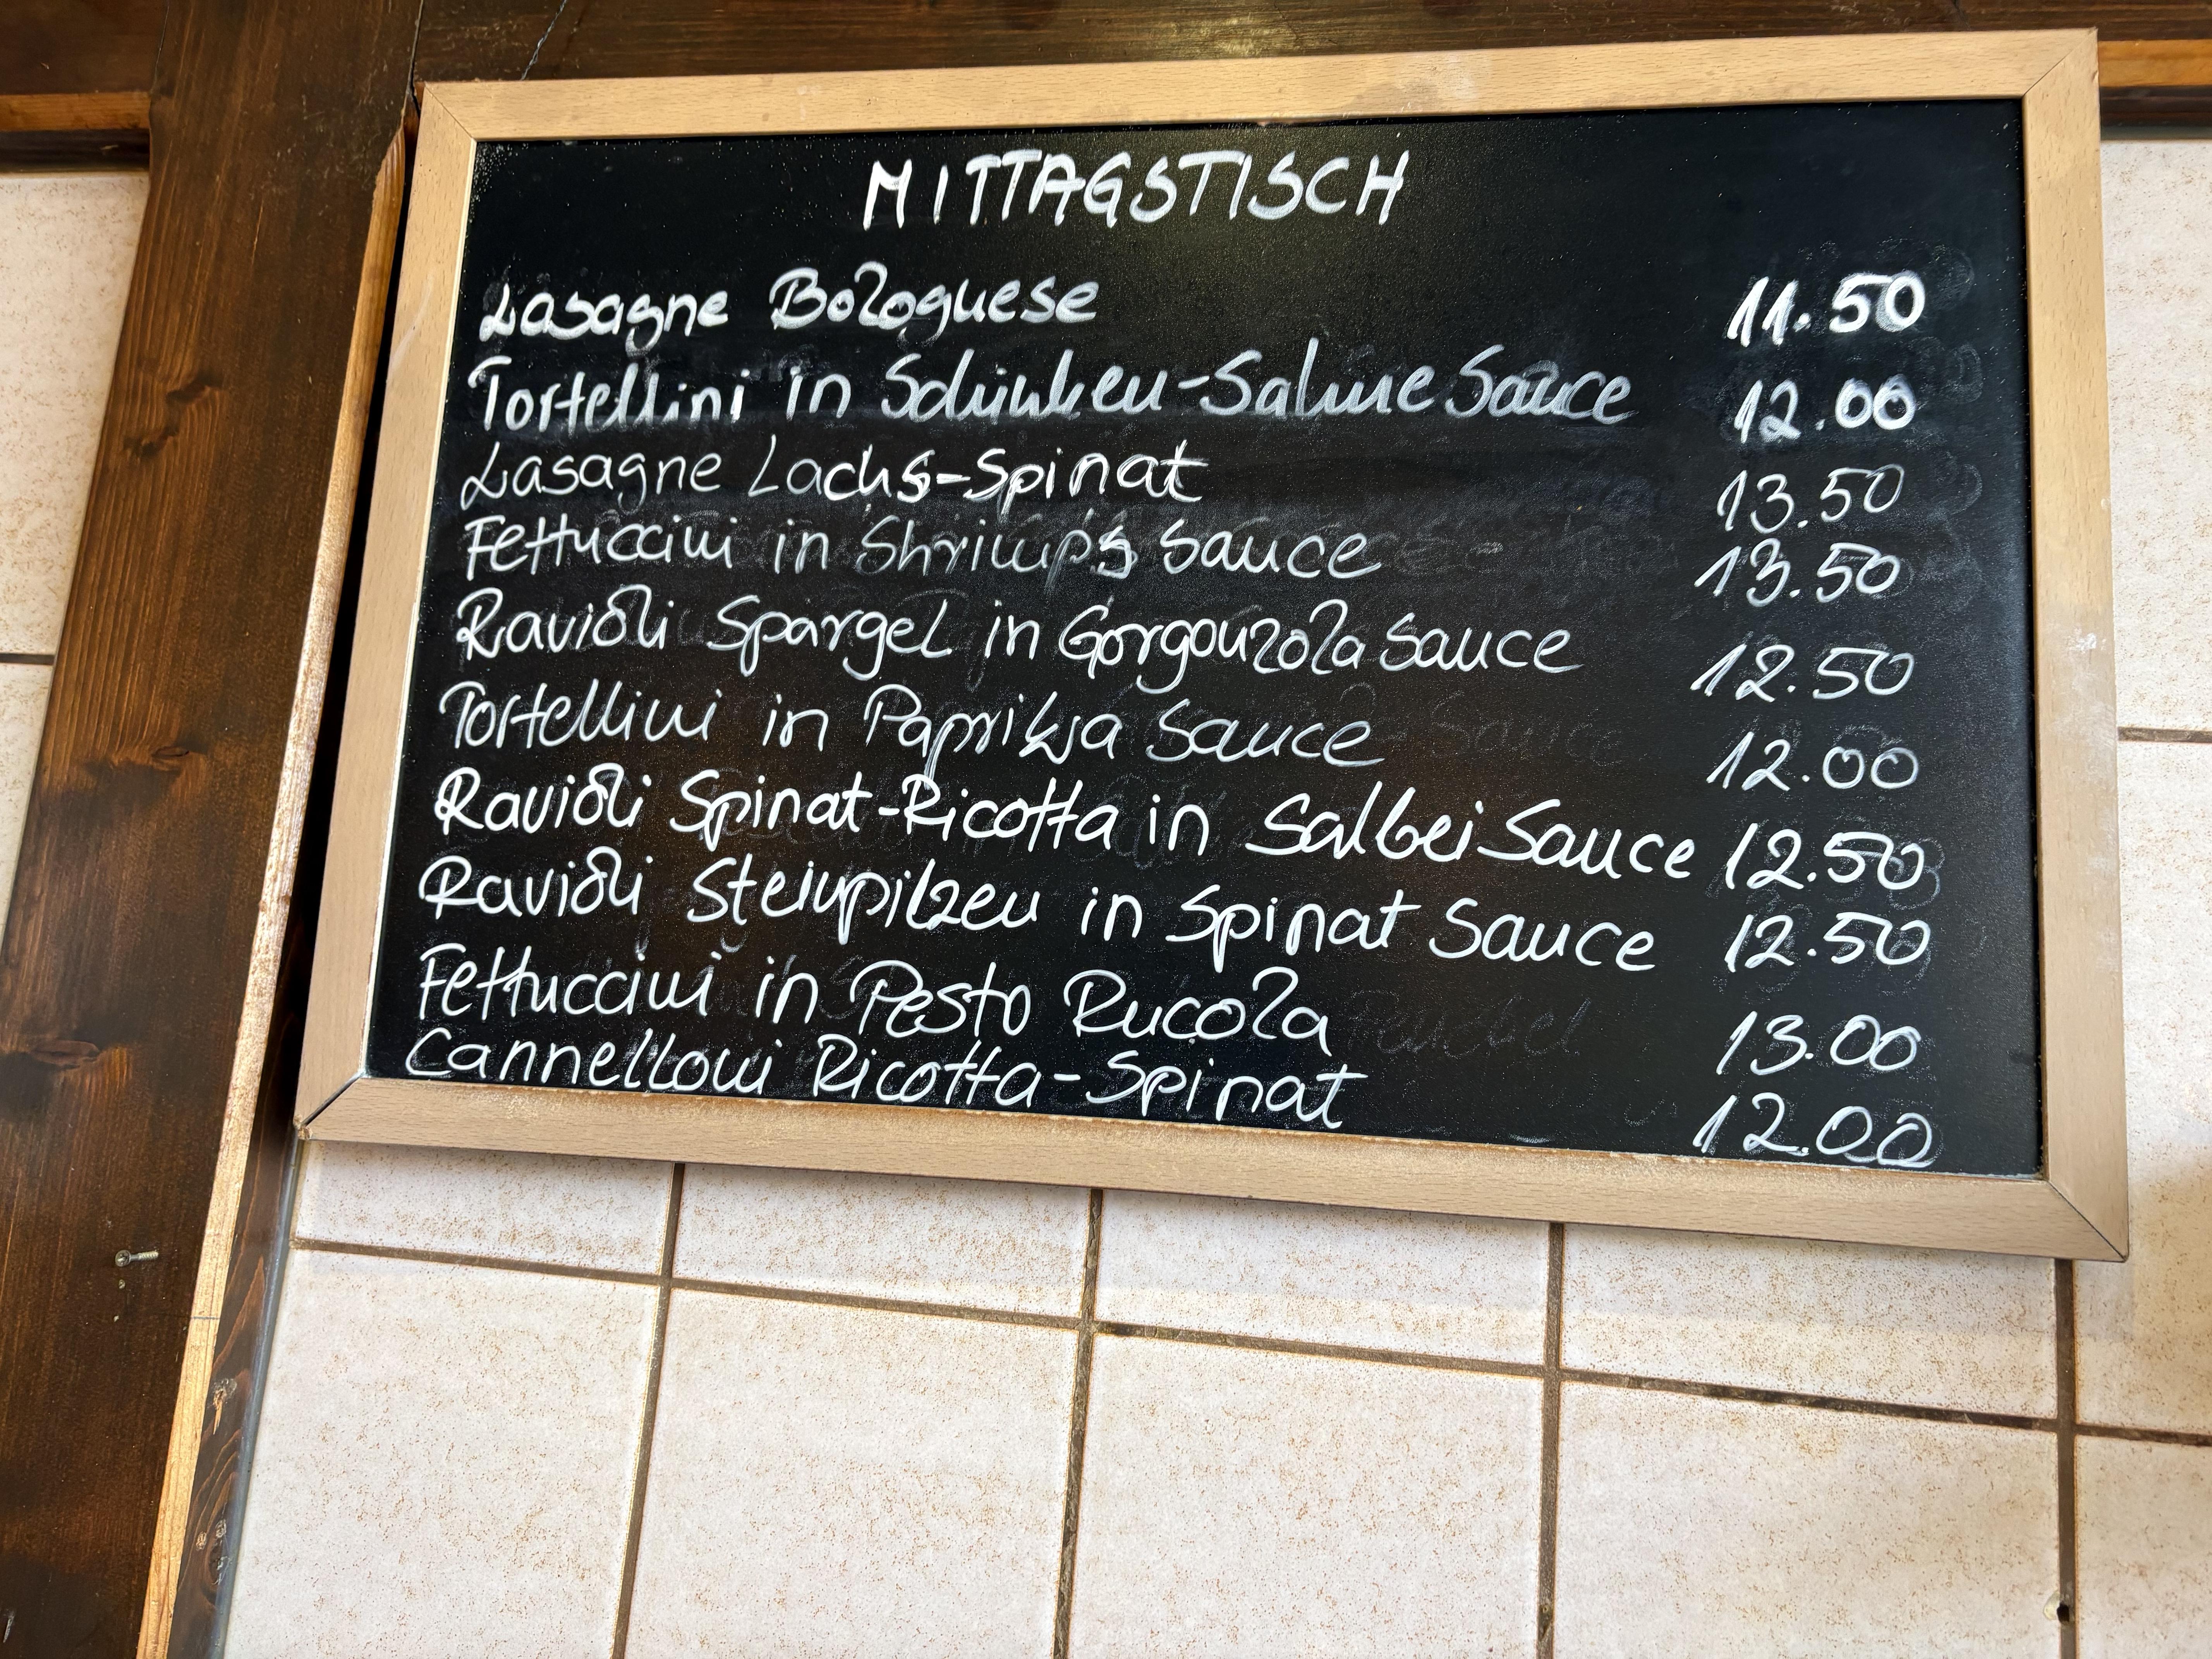 MITTAGSTISCH
Lasagne Bolognese 11.50
Tortellini in Schinken-Sahne Sauce 12.00
Lasagne Lachs-Spinat 13.50
Fettuccini in Shrimps Sauce 13.50
Ravioli Spargel in Gorgonzola Sauce 12.50
Tortellini in Paprika Sauce 12.00
Ravioli Spinat-Ricotta in Salbei Sauce 12.50
Ravioli Steinpilzen in Spinat Sauce 12.50
Fettuccini in Pesto Rucola 13.00
Cannelloni Ricotta-Spinat 12.00